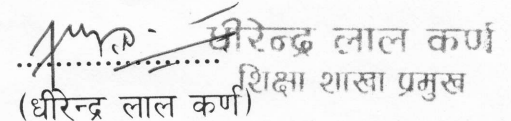 धीरेन्द्र लाल कर्ण
शिक्षा शाखा प्रमुख
(धीरेन्द्र लाल कर्ण)